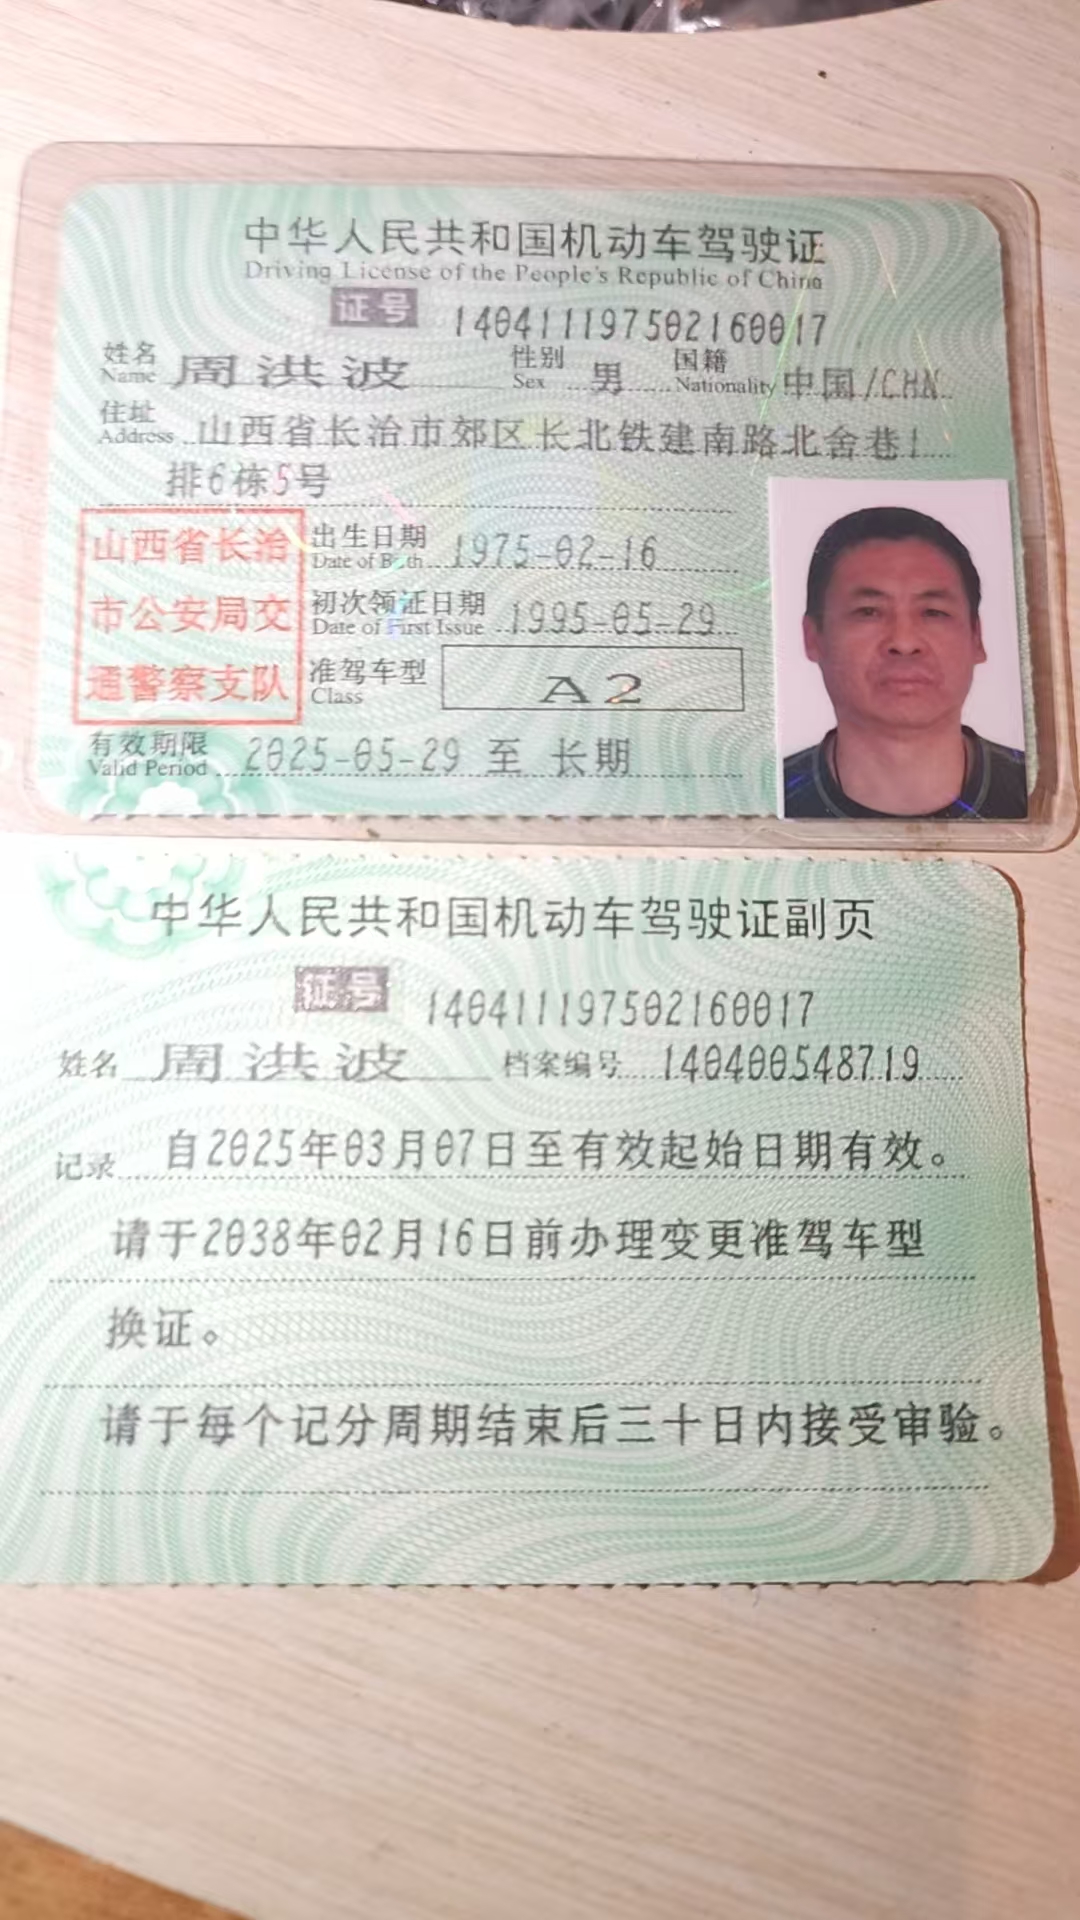 中华人民共和国机动车驾驶证
Driving License of the People's Republic of China
证号 140411197502160017
姓名 周洪波 性别 男 国籍 中国/CHN
Name Sex Nationality
住址 山西省长治市郊区长北铁建南路北舍巷1
Address
排6栋5号
山西省长治
市公安局交
通警察支队
出生日期 1975-02-16
Date of Birth
初次领证日期 1995-05-29
Date of First Issue
准驾车型 A2
Class
有效期限 2025-05-29 至 长期
Valid Period
中华人民共和国机动车驾驶证副页
证号 140411197502160017
姓名 周洪波 档案编号 140400548719
记录 自2025年03月07日至有效起始日期有效。
请于2038年02月16日前办理变更准驾车型
换证。
请于每个记分周期结束后三十日内接受审验。